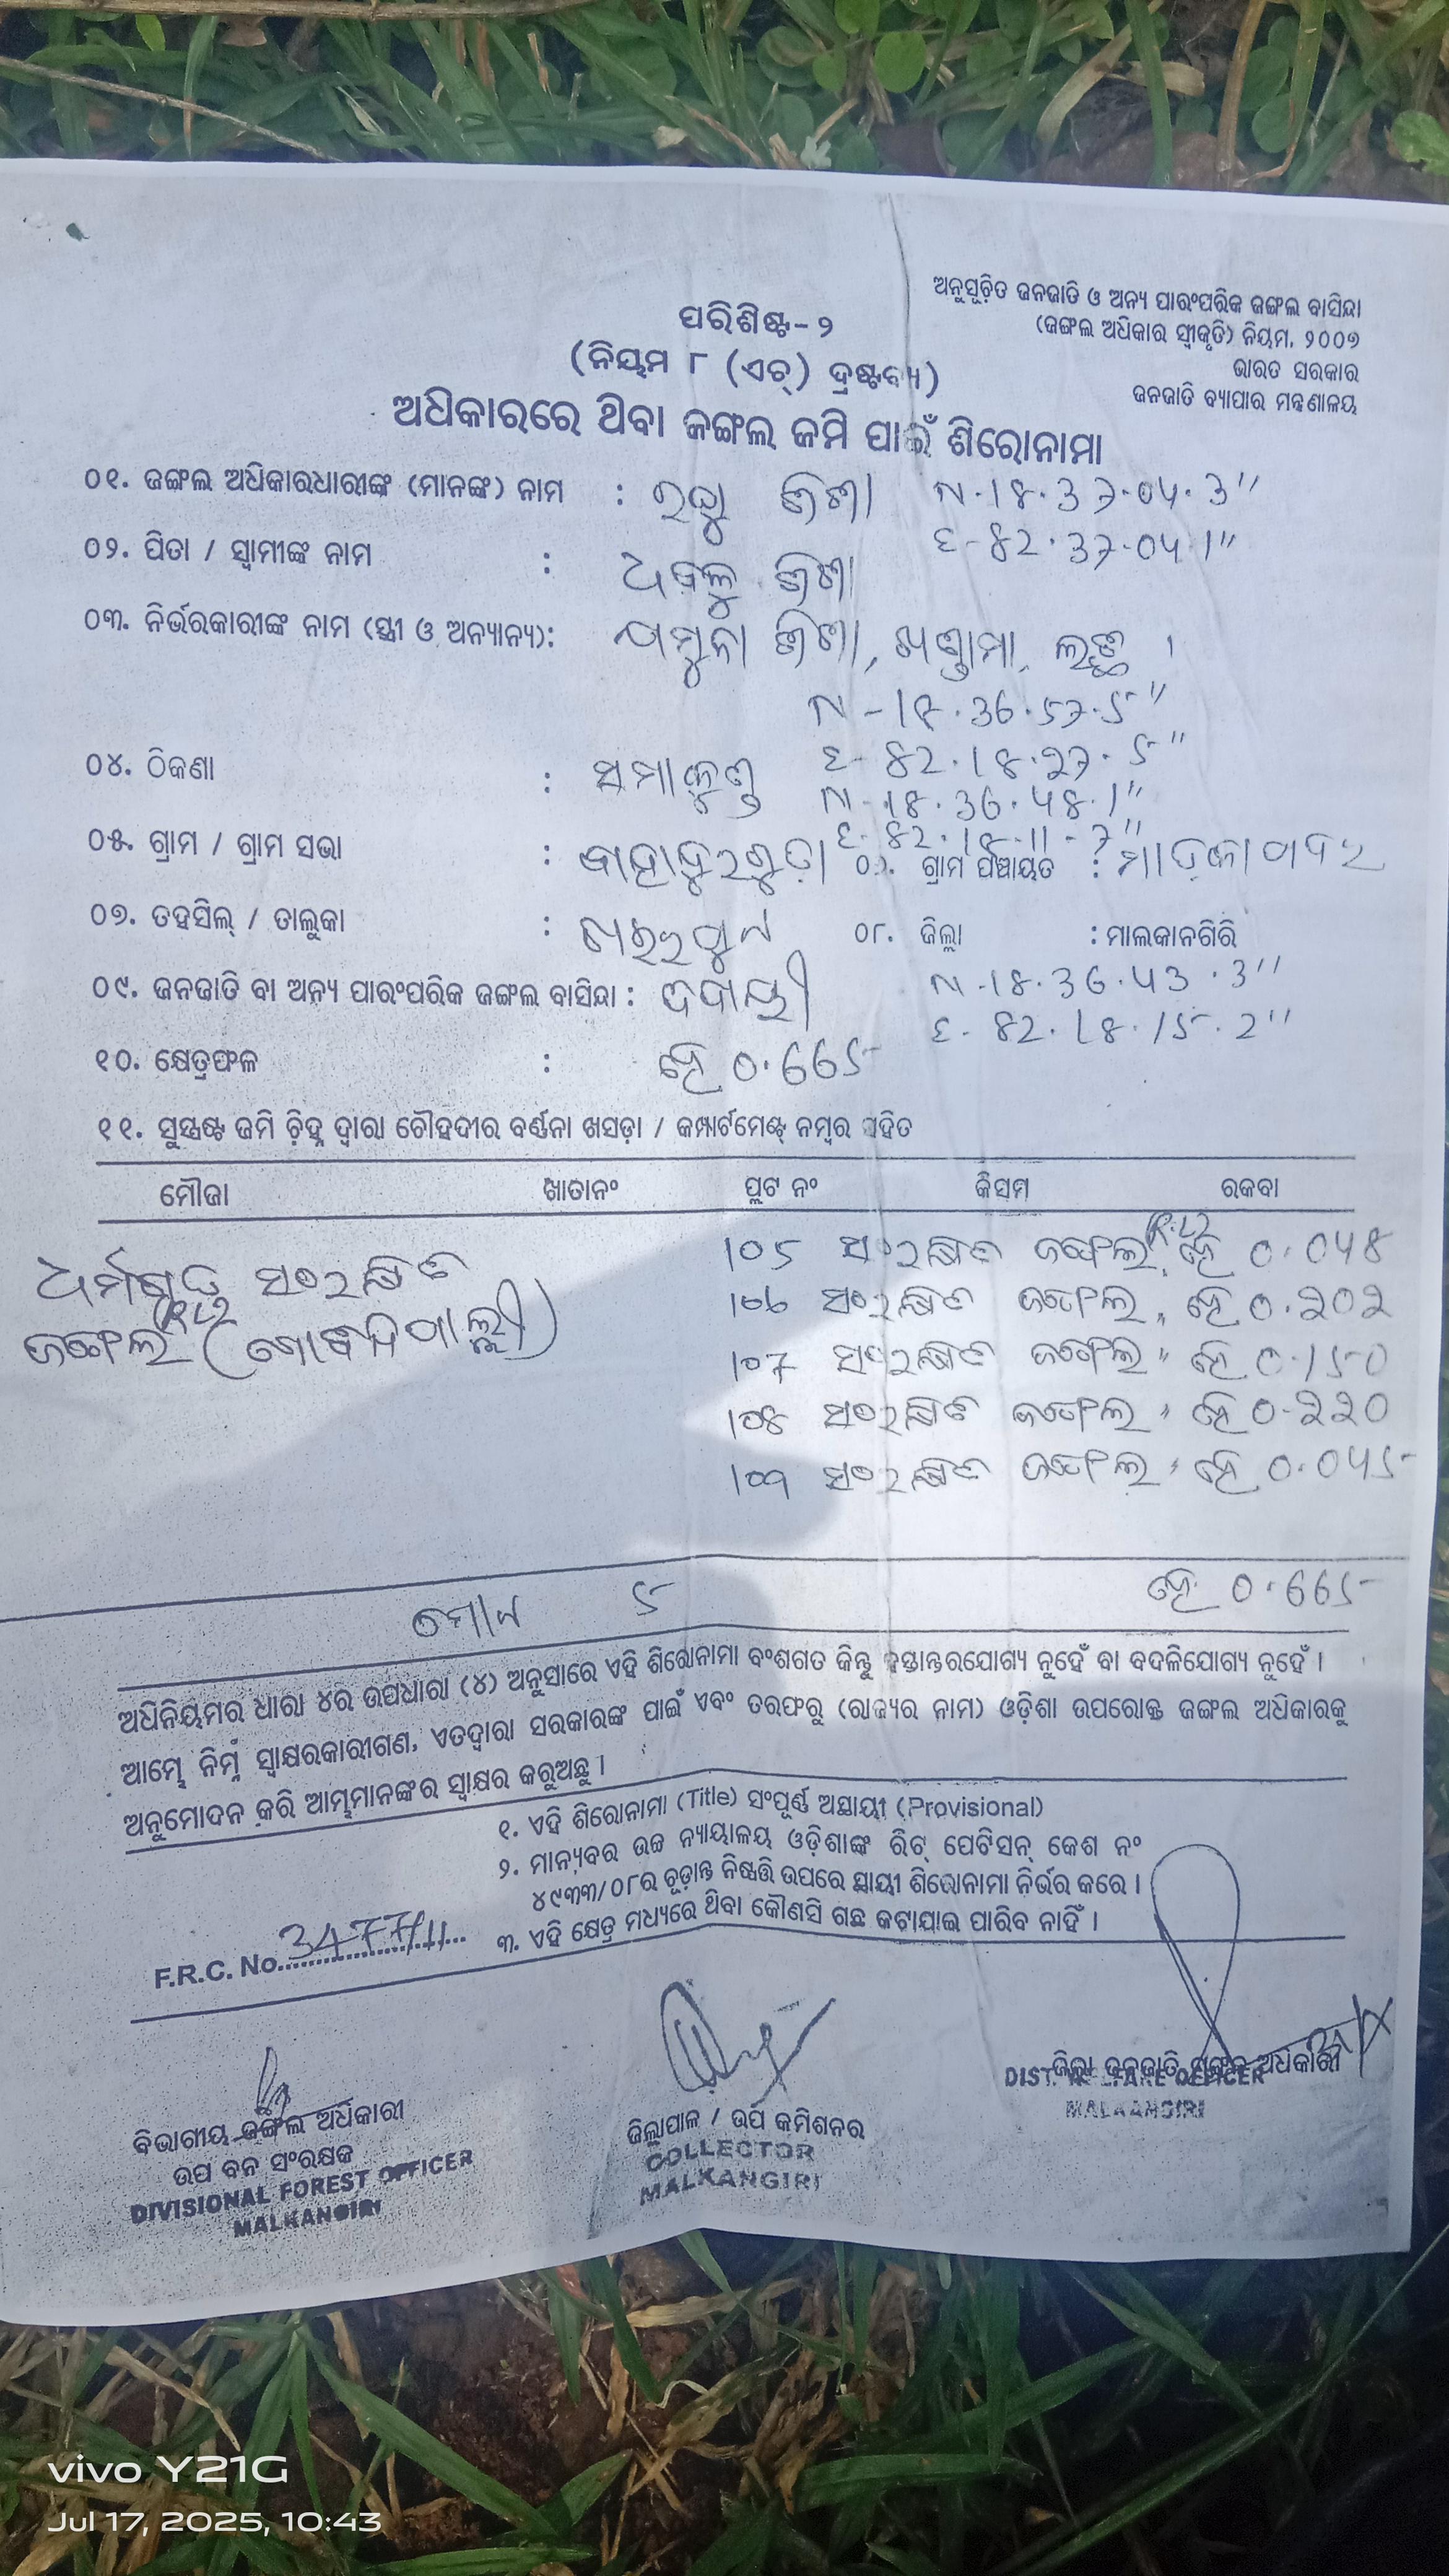 ଅନୁସୂଚିତ ଜନଜାତି ଓ ଅନ୍ୟ ପାରଂପରିକ ଜଙ୍ଗଲ ବାସିନ୍ଦା
(ଜଙ୍ଗଲ ଅଧିକାର ସ୍ୱୀକୃତି) ନିୟମ, ୨୦୦୭
ଭାରତ ସରକାର
ଜନଜାତି ବ୍ୟାପାର ମନ୍ତ୍ରଣାଳୟ
ପରିଶିଷ୍ଟ-୨
(ନିୟମ ୮ (ଏଚ୍) ଦ୍ରଷ୍ଟବ୍ୟ)
ଅଧିକାରରେ ଥିବା ଜଙ୍ଗଲ ଜମି ପାଇଁ ଶିରୋନାମା
୦୧. ଜଙ୍ଗଲ ଅଧିକାରଧାରୀଙ୍କ (ମାନଙ୍କ) ନାମ : N-18.37.04.3"
E-82.37.04.1"
୦୨. ପିତା / ସ୍ୱାମୀଙ୍କ ନାମ :
୦୩. ନିର୍ଭରକାରୀଙ୍କ ନାମ (ସ୍ତ୍ରୀ ଓ ଅନ୍ୟାନ୍ୟ):
N-18.36.57.5"
E-82.18.27.5"
୦୪. ଠିକଣା : ସମାକୁଣ୍ଡ
N-18.36.48.1"
E-82.18.11-7"
୦୫. ଗ୍ରାମ / ଗ୍ରାମ ସଭା : ବାହାଦୁରଗୁଡା ଗ୍ରାମ ପଞ୍ଚାୟତ :
୦୭. ତହସିଲ୍ / ତାଲୁକା : ୦୮. ଜିଲ୍ଲା : ମାଲକାନଗିରି
N-18.36.43.3"
୦୯. ଜନଜାତି ବା ଅନ୍ୟ ପାରଂପରିକ ଜଙ୍ଗଲ ବାସିନ୍ଦା : E-82.18.15.2"
୧୦. କ୍ଷେତ୍ରଫଳ : ହେ 0.665
୧୧. ସୁସ୍ପଷ୍ଟ ଜମି ଚିହ୍ନ ଦ୍ୱାରା ଚୌହଦୀର ବର୍ଣ୍ଣନା ଖସଡ଼ା / କମ୍ପାର୍ଟମେଣ୍ଟ୍ ନମ୍ବର ସହିତ
ମୌଜା ଖାତାନଂ ପ୍ଲଟ ନଂ କିସମ ରକବା
ସଂରକ୍ଷିତ 105 ସଂରକ୍ଷିତ ଜଙ୍ଗଲ ହେ 0.048
ଜଙ୍ଗଲ 106 ସଂରକ୍ଷିତ ଜଙ୍ଗଲ " ହେ 0.202
107 ସଂରକ୍ଷିତ ଜଙ୍ଗଲ " ହେ 0.150
108 ସଂରକ୍ଷିତ ଜଙ୍ଗଲ " ହେ 0.220
109 ସଂରକ୍ଷିତ ଜଙ୍ଗଲ " ହେ 0.045
ମୋଟ 5 ହେ 0.665
ଅଧିନିୟମର ଧାରା ୪ର ଉପଧାରା (୪) ଅନୁସାରେ ଏହି ଶିରୋନାମା ବଂଶଗତ କିନ୍ତୁ ହସ୍ତାନ୍ତରଯୋଗ୍ୟ ନୁହେଁ ବା ବଦଳିଯୋଗ୍ୟ ନୁହେଁ ।
ଆମ୍ଭେ ନିମ୍ନ ସ୍ୱାକ୍ଷରକାରୀଗଣ, ଏତଦ୍ୱାରା ସରକାରଙ୍କ ପାଇଁ ଏବଂ ତରଫରୁ (ରାଜ୍ୟର ନାମ) ଓଡ଼ିଶା ଉପରୋକ୍ତ ଜଙ୍ଗଲ ଅଧିକାରକୁ
ଅନୁମୋଦନ କରି ଆମ୍ଭମାନଙ୍କର ସ୍ୱାକ୍ଷର କରୁଅଛୁ ।
୧. ଏହି ଶିରୋନାମା (Title) ସଂପୂର୍ଣ୍ଣ ଅସ୍ଥାୟୀ (Provisional)
୨. ମାନ୍ୟବର ଉଚ୍ଚ ନ୍ୟାୟାଳୟ ଓଡ଼ିଶାଙ୍କ ରିଟ୍ ପେଟିସନ୍ କେଶ ନଂ
୪୯୩୩/୦୮ର ଚୂଡ଼ାନ୍ତ ନିଷ୍ପତ୍ତି ଉପରେ ସ୍ଥାୟୀ ଶିରୋନାମା ନିର୍ଭର କରେ ।
୩. ଏହି କ୍ଷେତ୍ର ମଧ୍ୟରେ ଥିବା କୌଣସି ଗଛ କଟାଯାଇ ପାରିବ ନାହିଁ ।
F.R.C. No. 3477/11
ବିଭାଗୀୟ ଜଙ୍ଗଲ ଅଧିକାରୀ
ଉପ ବନ ସଂରକ୍ଷକ
DIVISIONAL FOREST OFFICER
MALKANGIRI
ଜିଲ୍ଲାପାଳ / ଉପ କମିଶନର
COLLECTOR
MALKANGIRI
ଜିଲ୍ଲା ଜନଜାତି ମଙ୍ଗଳ ଅଧିକାରୀ
DIST. WELFARE OFFICER
MALKANGIRI
vivo Y21G
Jul 17, 2025, 10:43